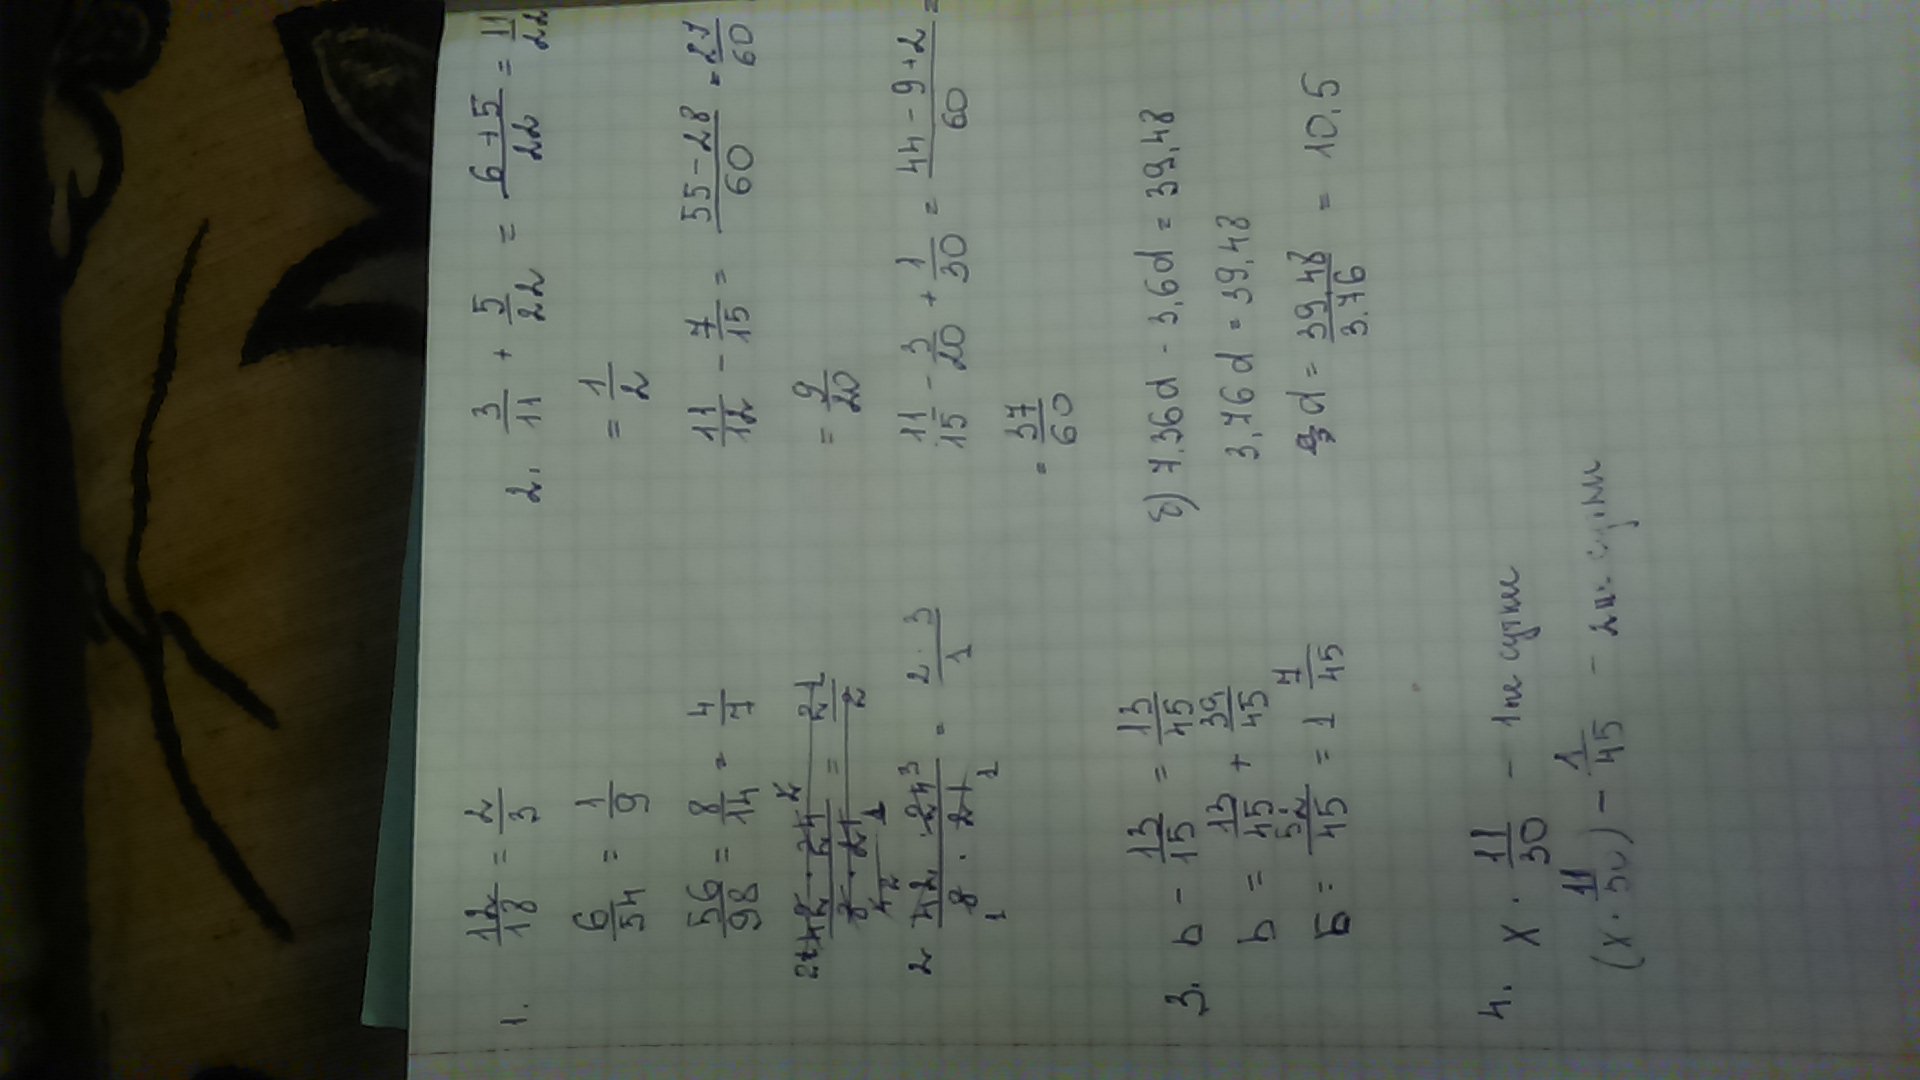 1. 12/18 = 2/3
6/54 = 1/9
56/98 = 8/14 = 4/7
2 42 · 24 3 / 8 · 21 = 2 · 3 / 1
1 1
2. 3/11 + 5/22 = 6+5/22 = 11/22
= 1/2
11/12 - 7/15 = 55-28/60 = 27/60
= 9/20
11/15 - 3/20 + 1/30 = 44-9+2/60 =
= 37/60
3. b - 13/15 = 13/45
b = 13/45 + 39/45
b = 52/45 = 1 7/45
б) 7,36d - 3,6d = 39,48
3,76d = 39,48
d = 39,48/3.76 = 10,5
4. x · 11/30 - 1ые сутки
(x · 11/30) - 1/45 - 2ые сутки